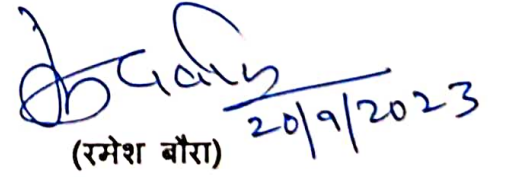 20/9/2023
(रमेश बौरा)